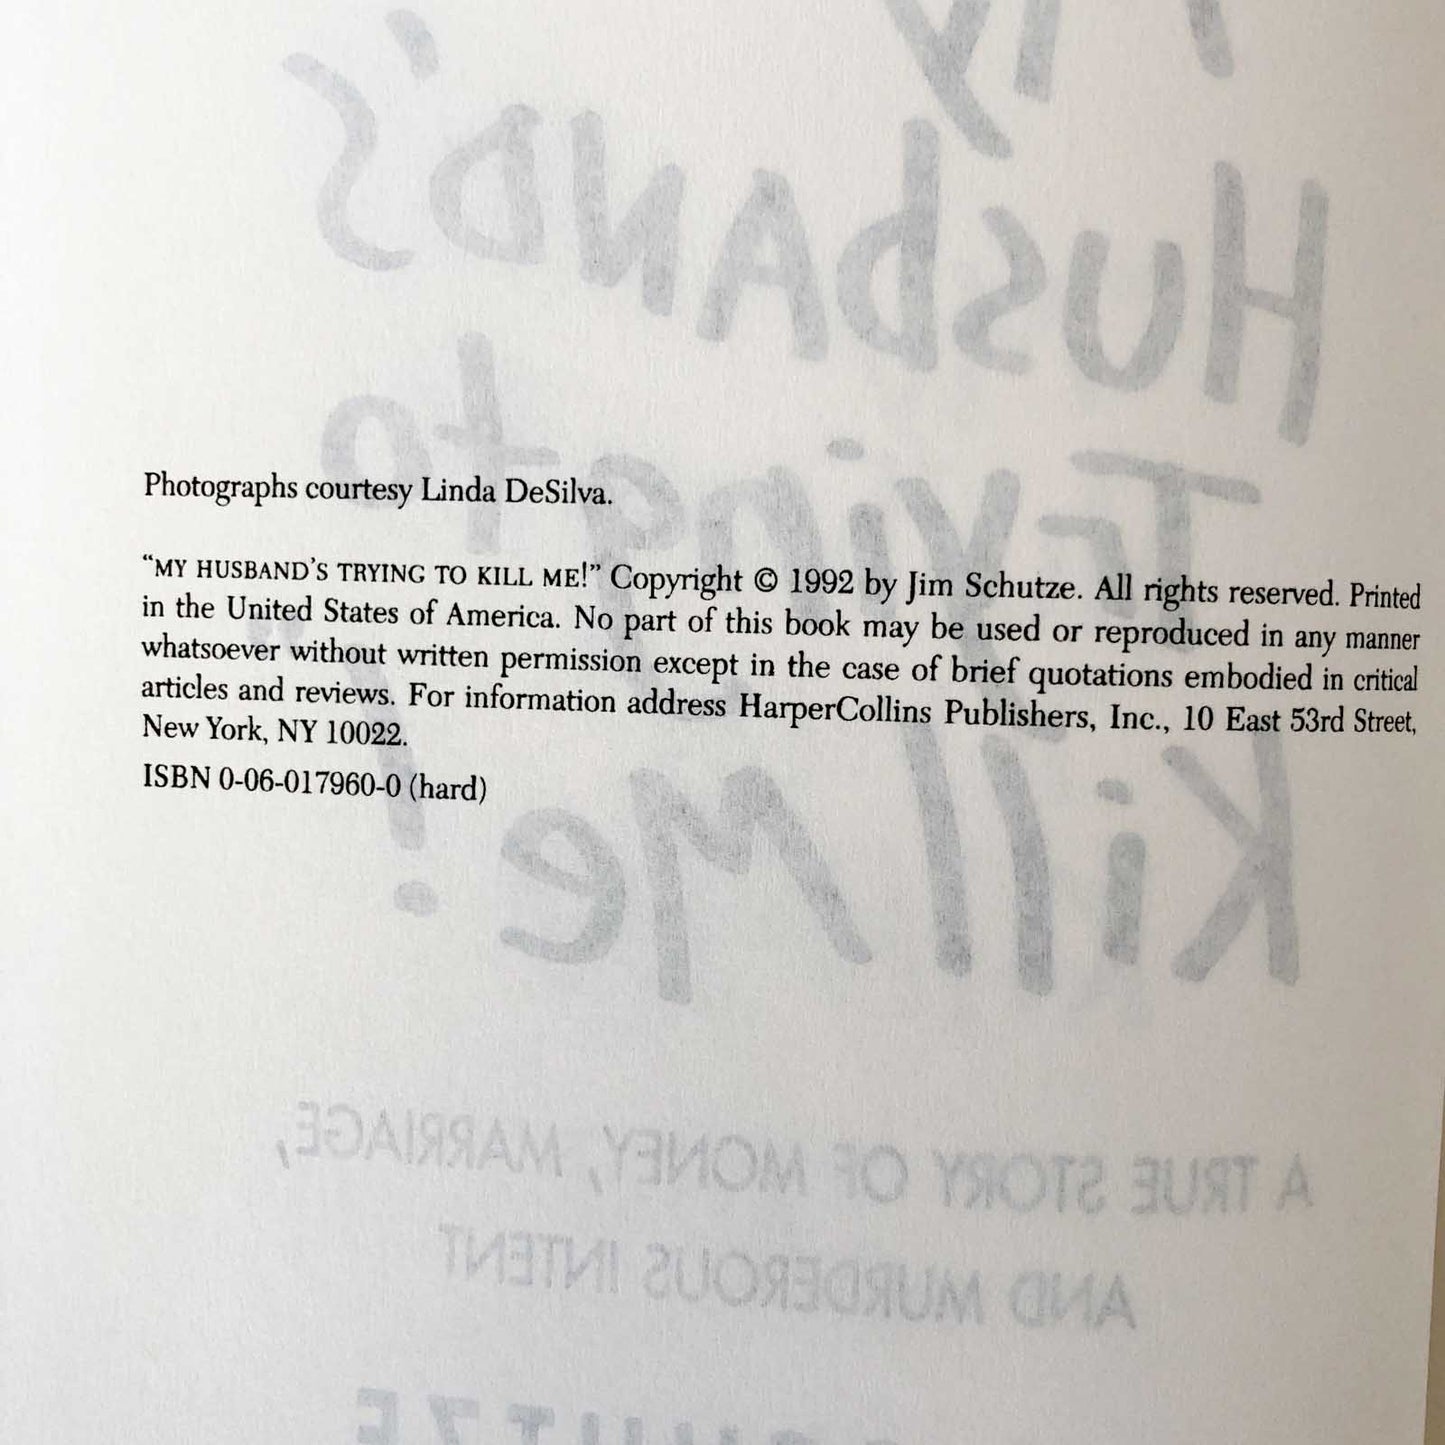 Photographs courtesy Linda DeSilva.
“MY HUSBAND’S TRYING TO KILL ME!” Copyright © 1992 by Jim Schutze. All rights reserved. Printed
in the United States of America. No part of this book may be used or reproduced in any manner
whatsoever without written permission except in the case of brief quotations embodied in critical
articles and reviews. For information address HarperCollins Publishers, Inc., 10 East 53rd Street,
New York, NY 10022.
ISBN 0-06-017960-0 (hard)
My
HUSbAND'S
Trying to
Kill Me!
A TRUE STORY OF MONEY, MARRIAGE,
AND MURDEROUS INTENT